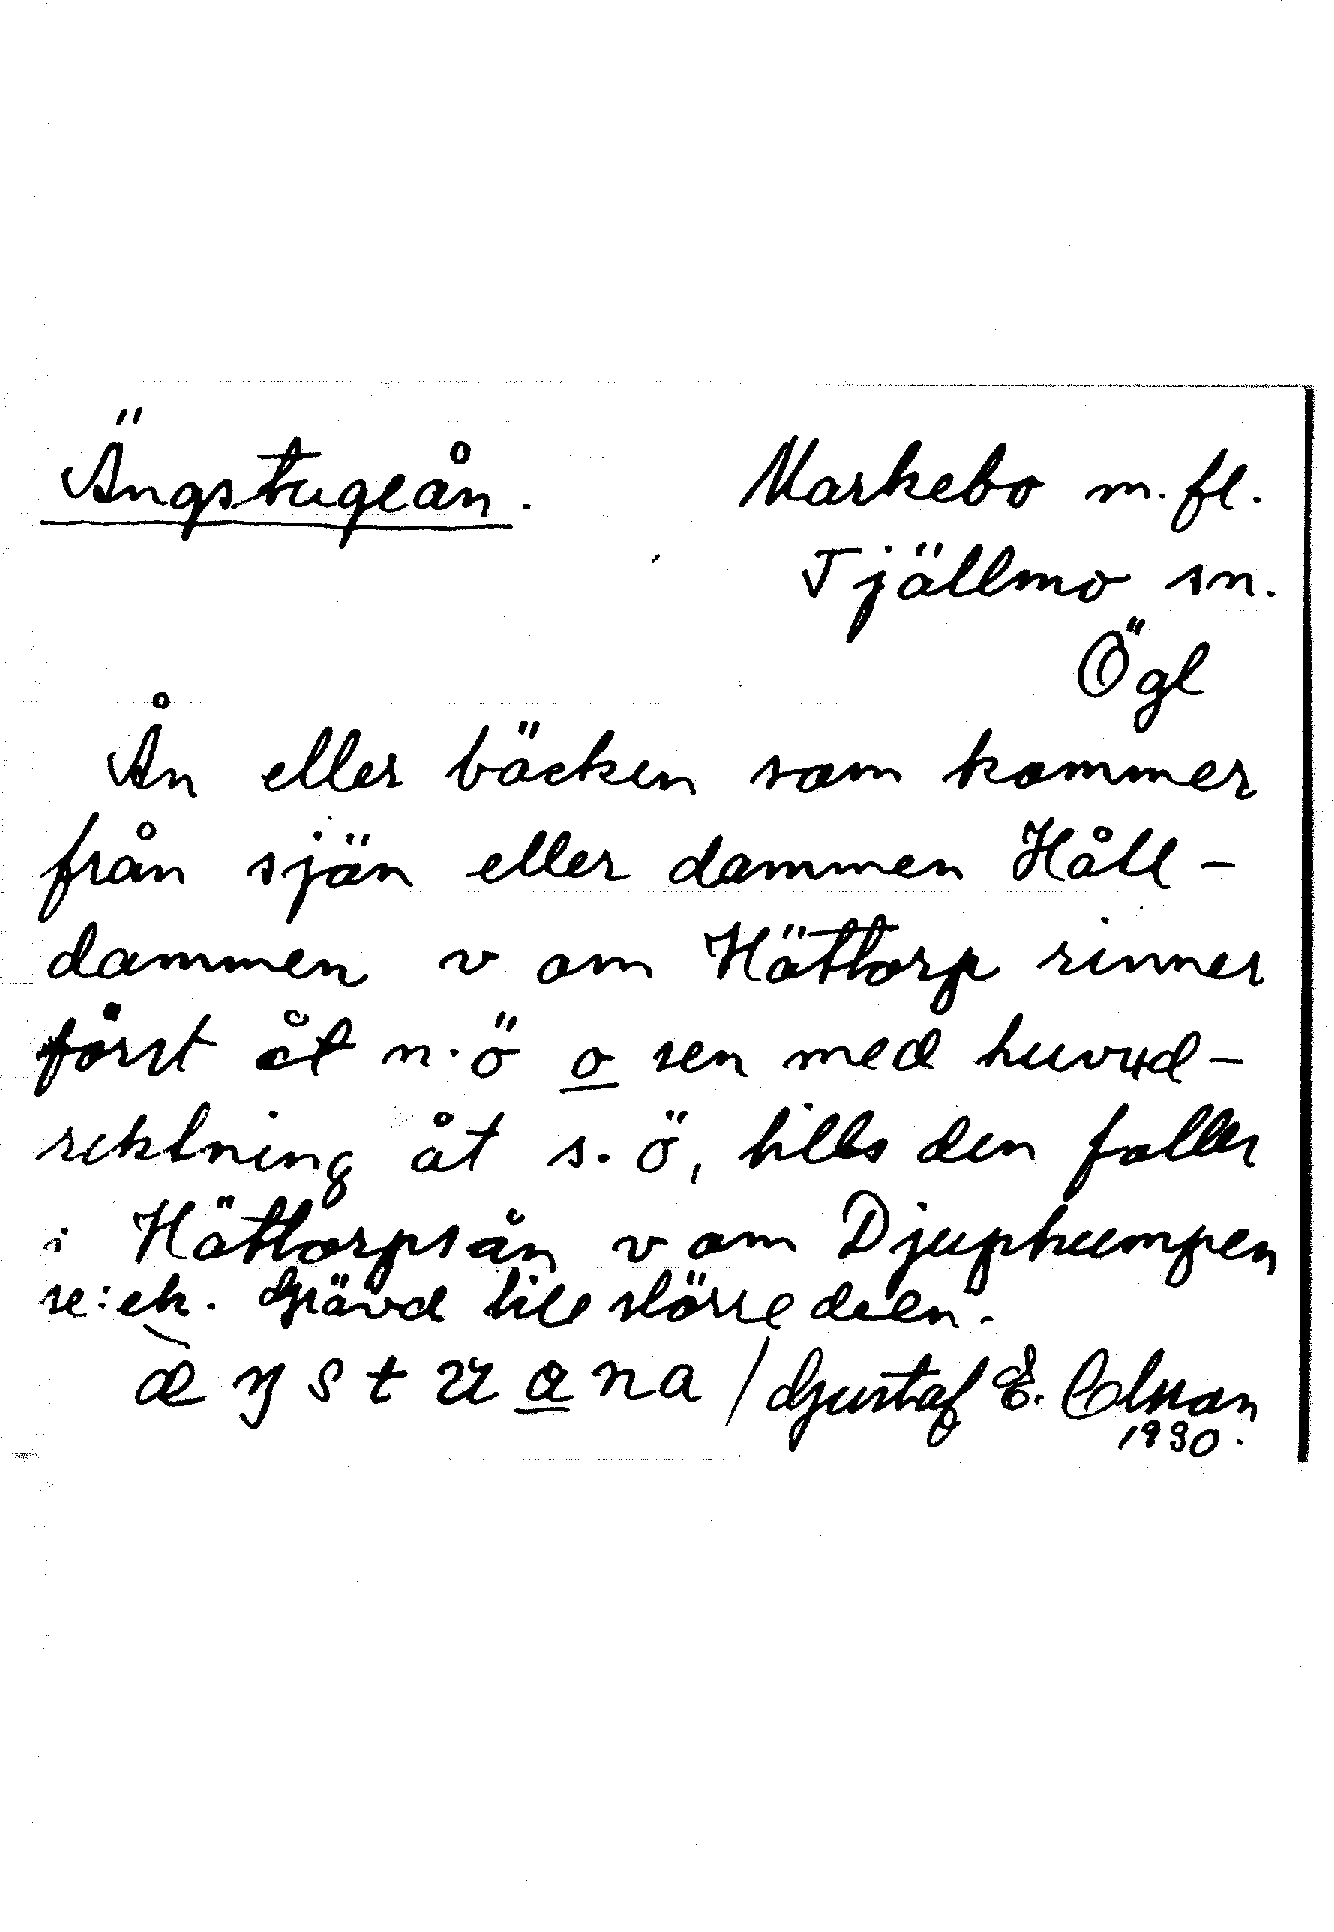 Ängstugeån. Markebo m. fl.
Tjällmo sn.
Ögl
Ån eller bäcken som kommer
från sjän eller dammen Håll-
dammen v om Hättorp rinner
först åt n.ö o sen med huvud-
rektning åt s.ö, tills den faller
i Hättorpsån v om Djuphumpen
se: ek. Grävd till större delen.
æ ŋ s t u a n a / Gustaf E.
1930.